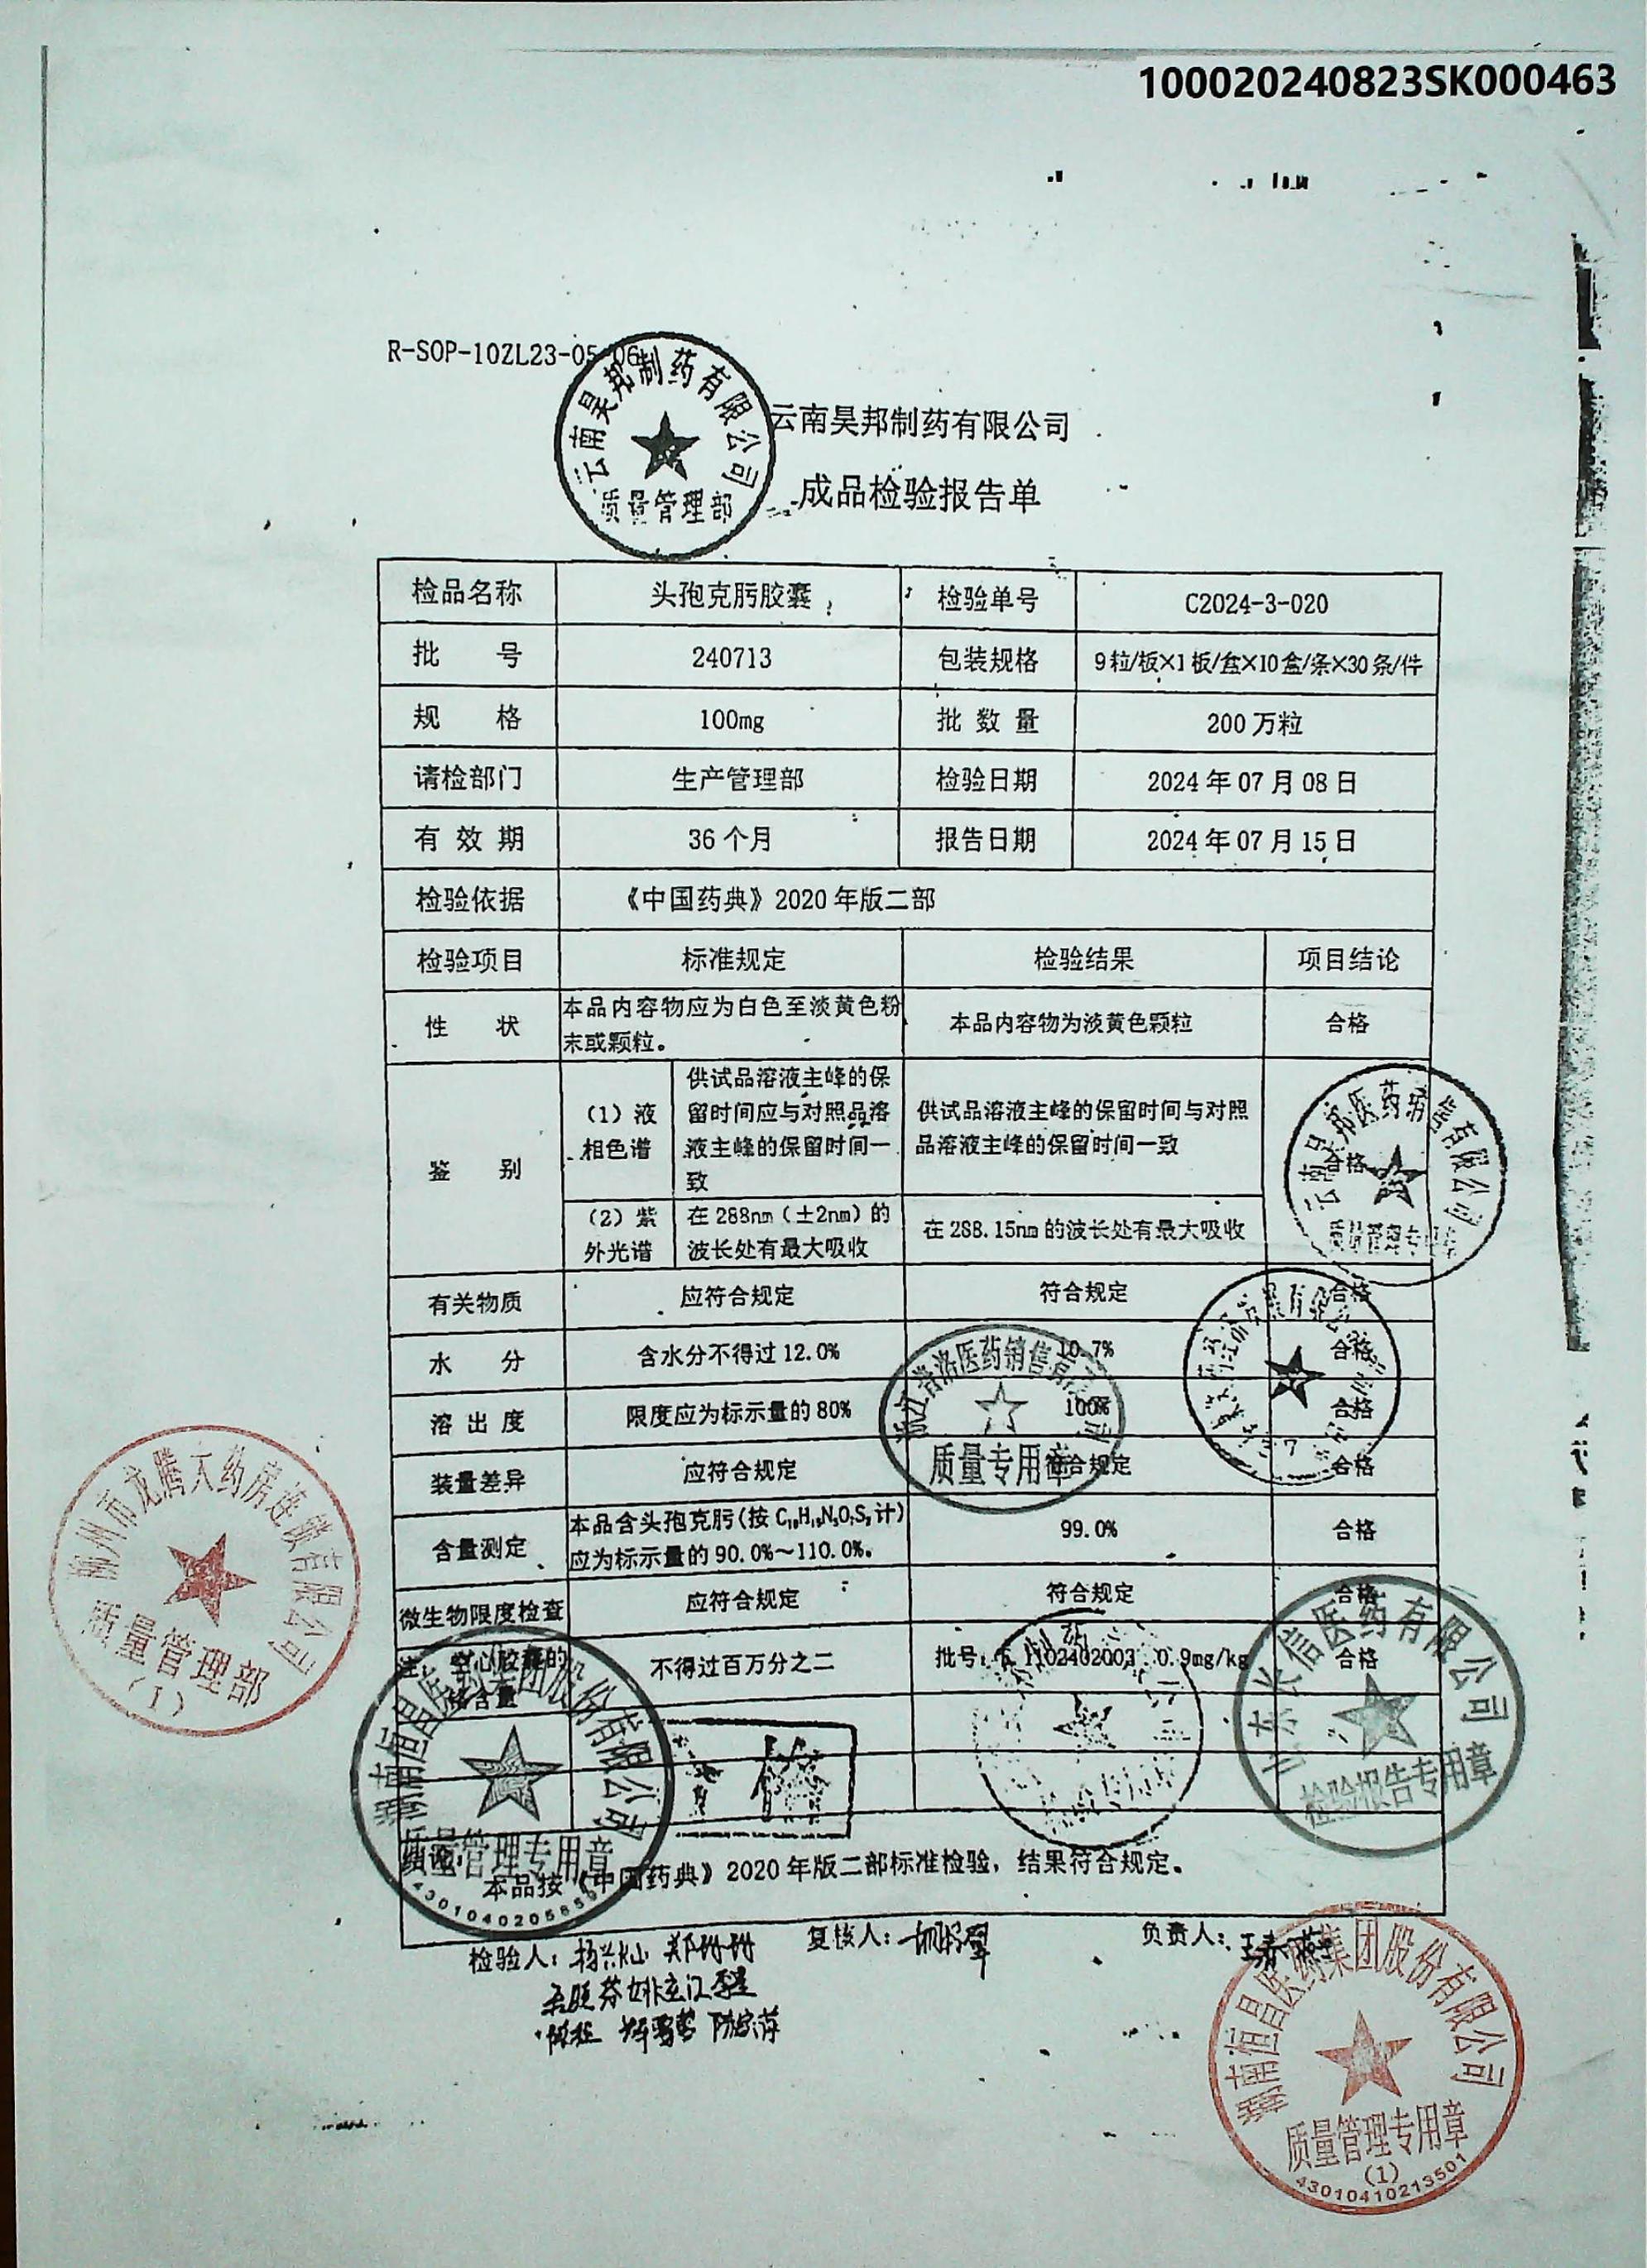 100020240823SK000463
R-SOP-10ZL23-05-06
云南昊邦制药有限公司
质量管理部
云南昊邦制药有限公司
成品检验报告单
检品名称 头孢克肟胶囊 检验单号 C2024-3-020
批 号 240713 包装规格 9粒/板×1板/盒×10盒/条×30条/件
规 格 100mg 批 数 量 200万粒
请检部门 生产管理部 检验日期 2024年07月08日
有 效 期 36个月 报告日期 2024年07月15日
检验依据 《中国药典》2020年版二部
检验项目 标准规定 检验结果 项目结论
性 状 本品内容物应为白色至淡黄色粉
末或颗粒。 本品内容物为淡黄色颗粒 合格
鉴 别
(1)液
相色谱
供试品溶液主峰的保
留时间应与对照品溶
液主峰的保留时间一
致
供试品溶液主峰的保留时间与对照
品溶液主峰的保留时间一致
合格
(2)紫
外光谱
在288nm(±2nm)的
波长处有最大吸收
在288.15nm的波长处有最大吸收
云南昊邦医药销售有限公司
有关物质 应符合规定 符合规定 合格
水 分 含水分不得过12.0% 10.7% 合格
溶 出 度 限度应为标示量的80% 100% 合格
装量差异 应符合规定 符合规定 合格
医药销售有
质量专用章
含量测定 本品含头孢克肟(按C₁₆H₁₅N₅O₇S₂计)
应为标示量的90.0%~110.0%。 99.0% 合格
微生物限度检查 应符合规定 符合规定 合格
注:空心胶囊的
铬含量 不得过百万分之二 批号: 1102402003 0.9mg/kg 合格
柳州市龙腾大药房连锁有限公司
质量管理部
(1)
湖南恒昌医药集团股份有限公司
质量管理专用章
山东长信医药有限公司
检验报告专用章
结论:
本品按《中国药典》2020年版二部标准检验,结果符合规定。
检验人: 复核人: 负责人:
湖南恒昌医药集团股份有限公司
质量管理专用章
(1)
43010410213501